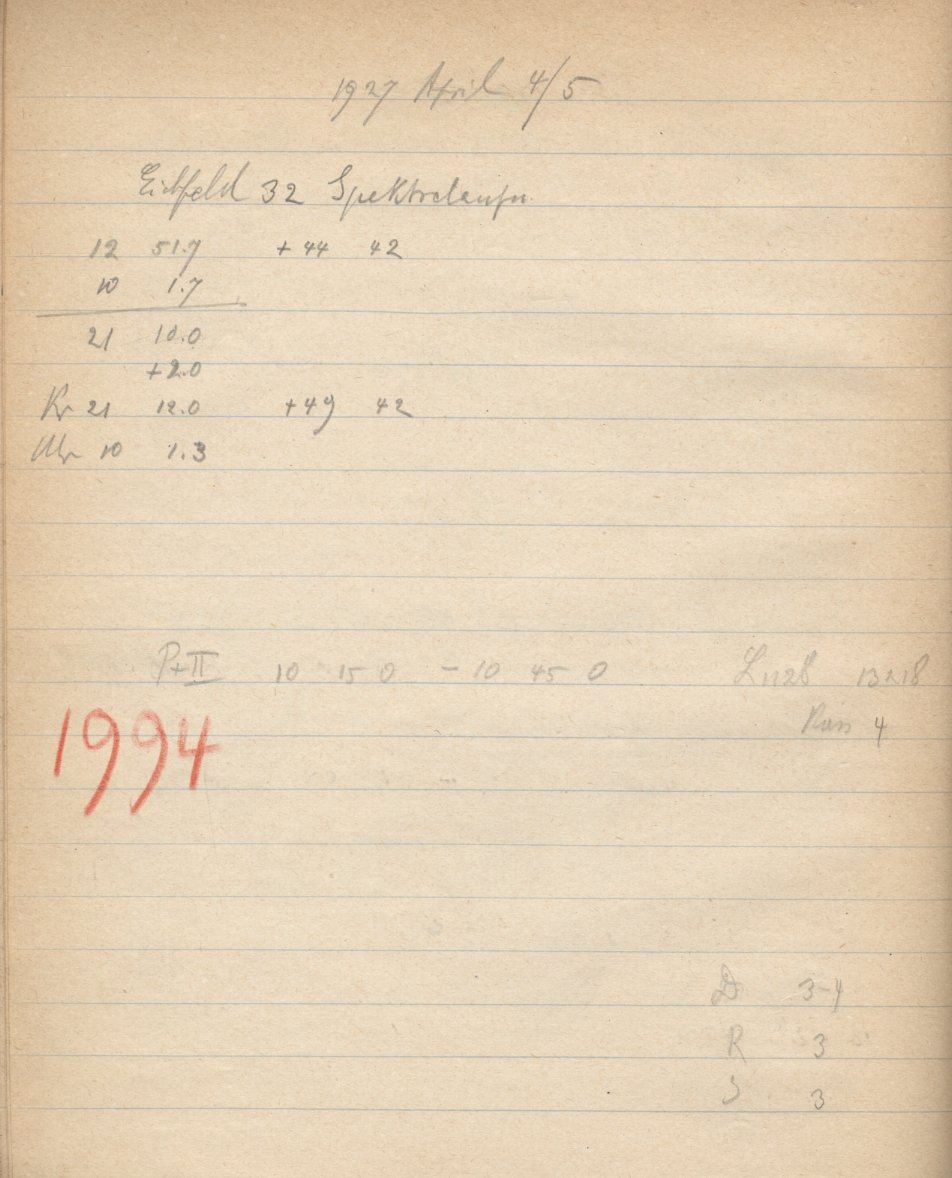 1927 April 4/5
Eichfeld 32 Spektralaufn.
12 51.7 +44 42
10 1.7
21 10.0
+2.0
Kr 21 12.0 +49 42
Uhr 10 1.3
P+II 10 15 0 – 10 45 0 13218
4
1994
D 3–4
R 3
S 3